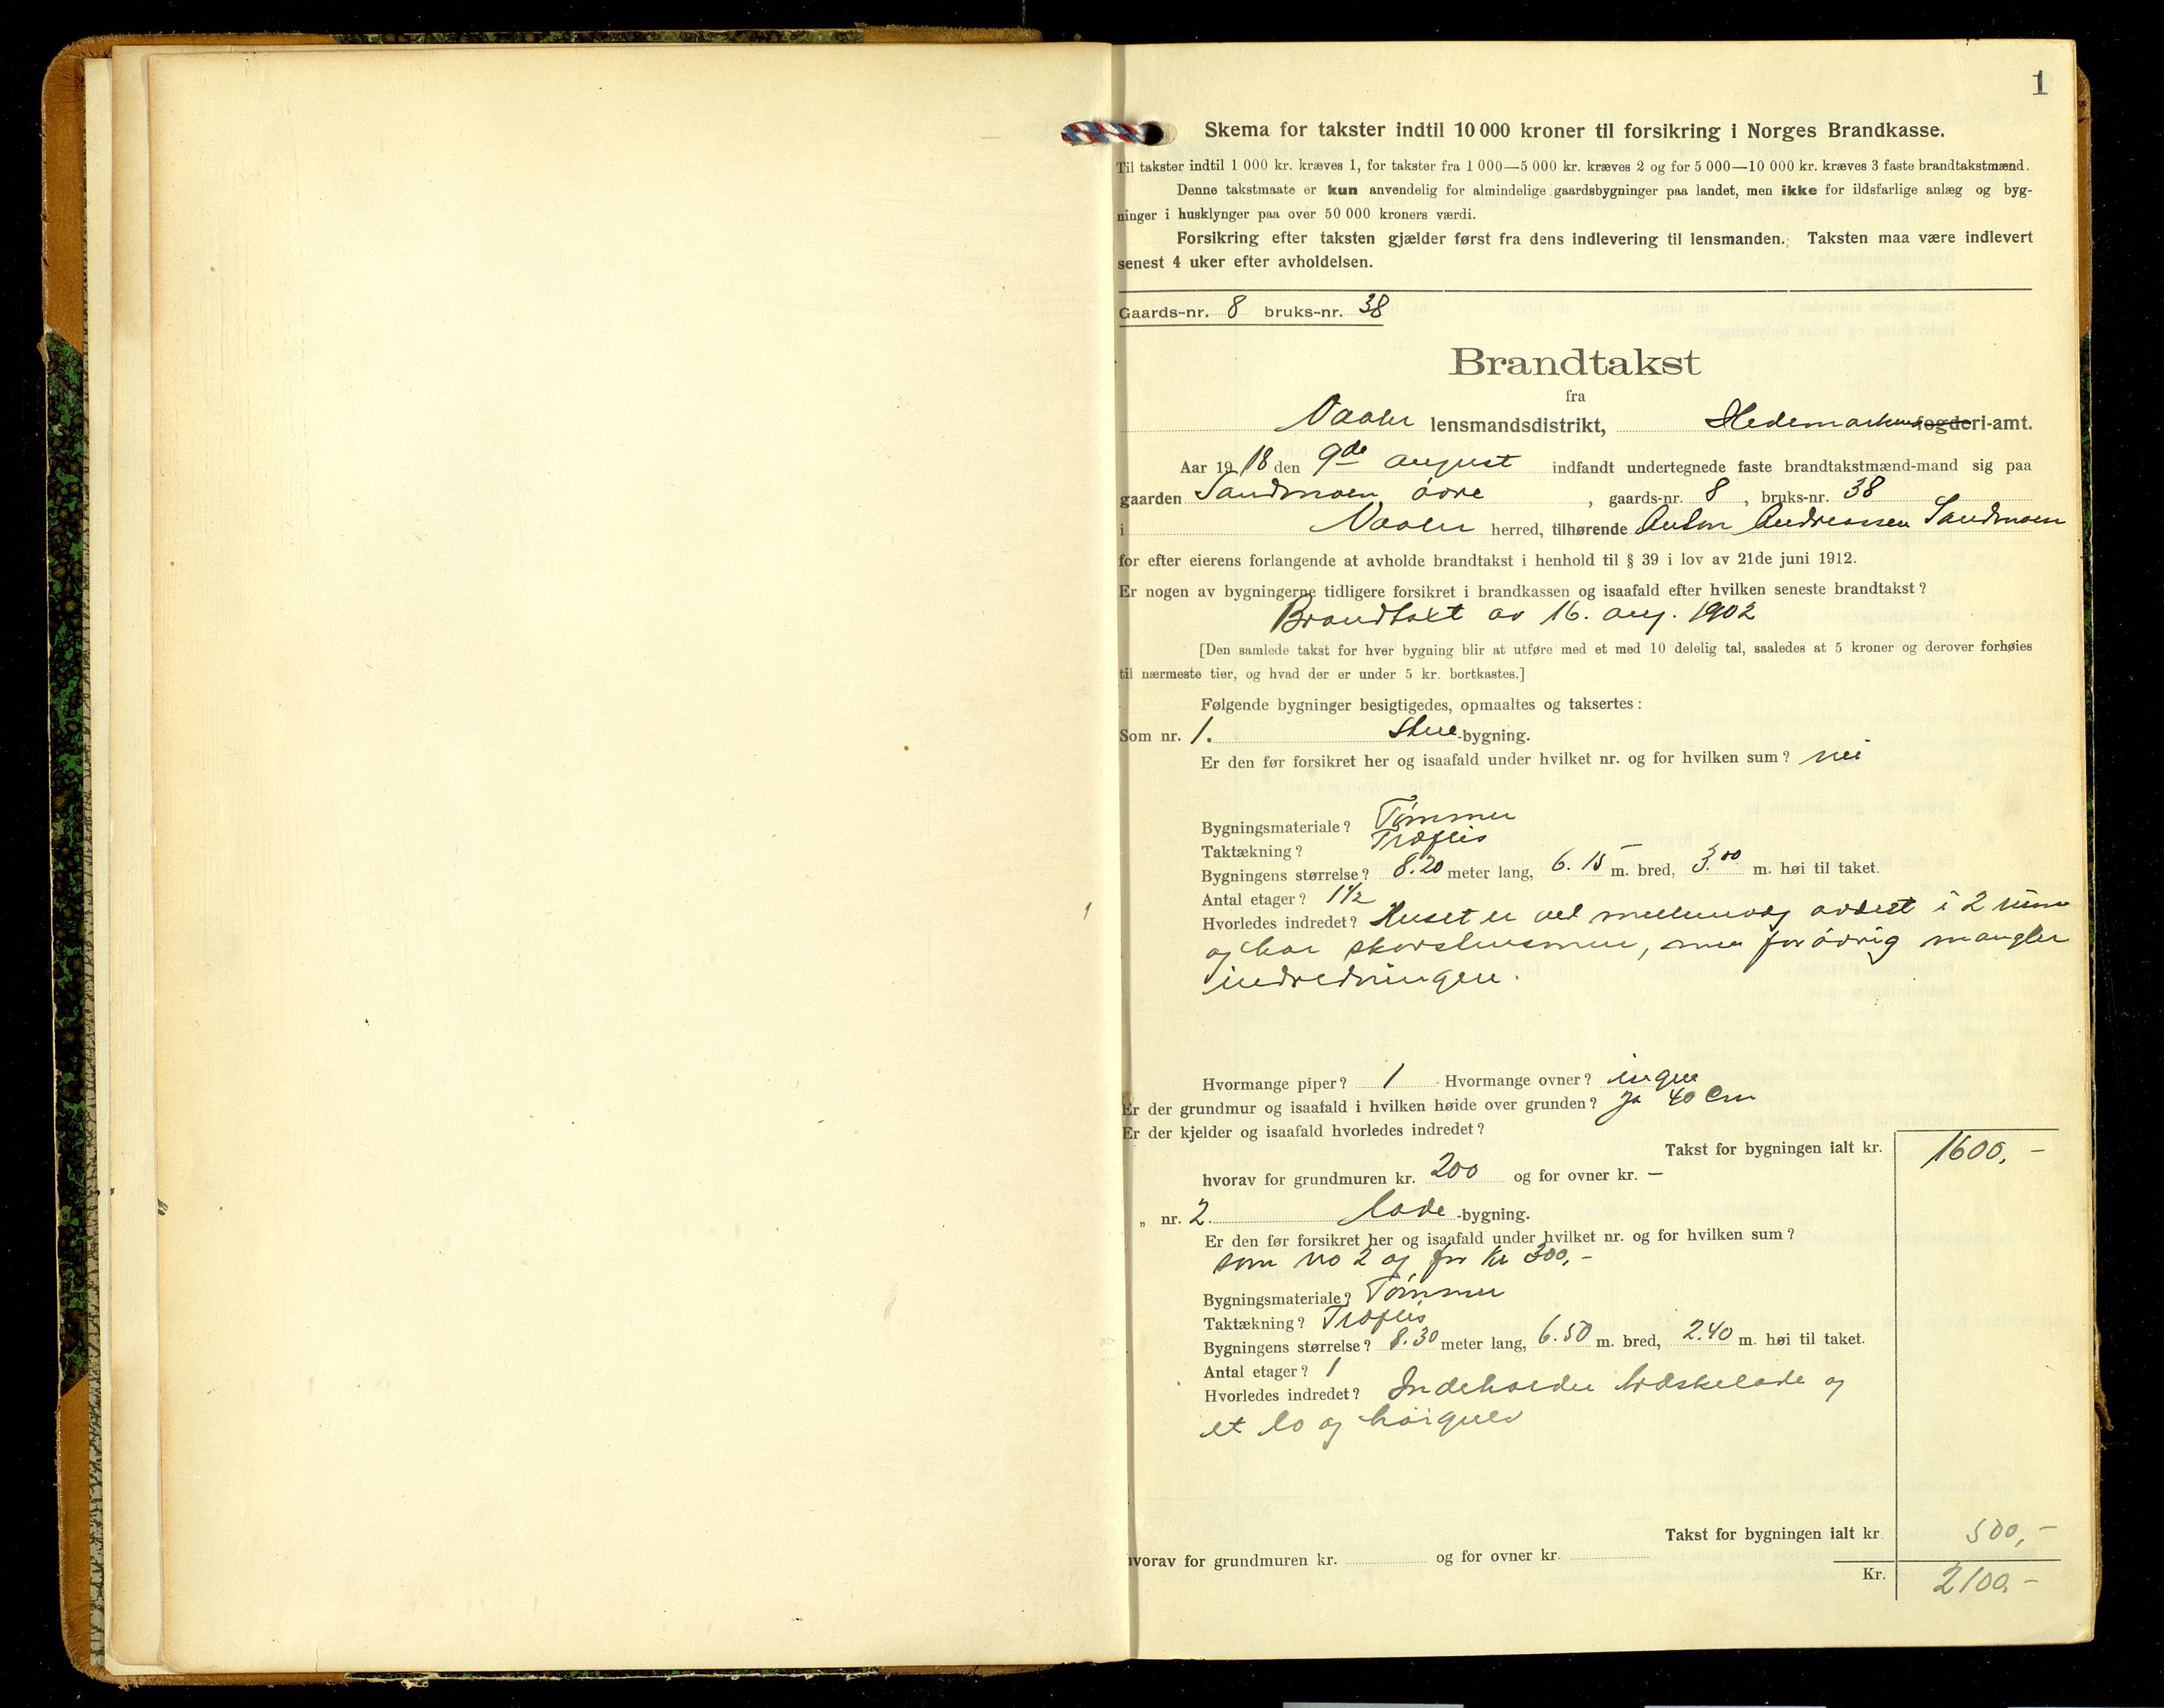 1
Skema for takster indtil 10 000 kroner til forsikring i Norges Brandkasse.
Til takster indtil 1 000 kr. kræves 1, for takster fra 1 000—5 000 kr. kræves 2 og for 5 000—10 000 kr. kræves 3 faste brandtakstmænd.
Denne takstmaate er kun anvendelig for almindelige gaardsbygninger paa landet, men ikke for ildsfarlige anlæg og byg-
ninger i husklynger paa over 50 000 kroners værdi.
Forsikring efter taksten gjælder først fra dens indlevering til lensmanden. Taksten maa være indlevert
senest 4 uker efter avholdelsen.
Gaards-nr. 8 bruks-nr. 38
Brandtakst
fra
Vaaler lensmandsdistrikt, Hedemarkens fogderi-amt.
Aar 1918 den 9de august indfandt undertegnede faste brandtakstmænd-mand sig paa
gaarden Sandmoen øvre, gaards-nr. 8, bruks-nr. 38
i Vaaler herred, tilhørende Anton Andreassen Sandmoen
for efter eierens forlangende at avholde brandtakst i henhold til § 39 i lov av 21de juni 1912.
Er nogen av bygningerne tidligere forsikret i brandkassen og isaafald efter hvilken seneste brandtakst?
Brandtaxt av 16. aug. 1902
[Den samlede takst for hver bygning blir at utføre med et med 10 delelig tal, saaledes at 5 kroner og derover forhøies
til nærmeste tier, og hvad der er under 5 kr. bortkastes.]
Følgende bygninger besigtigedes, opmaaltes og taksertes:
Som nr. 1. Stue-bygning.
Er den før forsikret her og isaafald under hvilket nr. og for hvilken sum? nei
Bygningsmateriale? Tømmer
Taktækning? Træflis
Bygningens størrelse? 8.20 meter lang, 6.15 m. bred, 3.00 m. høi til taket.
Antal etager? 1½
Hvorledes indredet? Huset er ved mellemvæg avdelt i 2 rum
og har skorstensmur, men forøvrig mangler
indredningen.
Hvormange piper? 1 Hvormange ovner? ingen
Er der grundmur og isaafald i hvilken høide over grunden? ja 40 Cm
Er der kjelder og isaafald hvorledes indredet?
Takst for bygningen ialt kr. 1600,-
hvorav for grundmuren kr. 200 og for ovner kr. —
„ nr. 2. Lade-bygning.
Er den før forsikret her og isaafald under hvilket nr. og for hvilken sum?
som no 2 og for Kr 300,-
Bygningsmateriale? Tømmer
Taktækning? Træflis
Bygningens størrelse? 8.30 meter lang, 6.50 m. bred, 2.40 m. høi til taket.
Antal etager? 1
Hvorledes indredet? Indeholder træskelade og
et lo og høigulv
Takst for bygningen ialt kr. 500,-
hvorav for grundmuren kr. og for ovner kr.
Kr. 2100,-